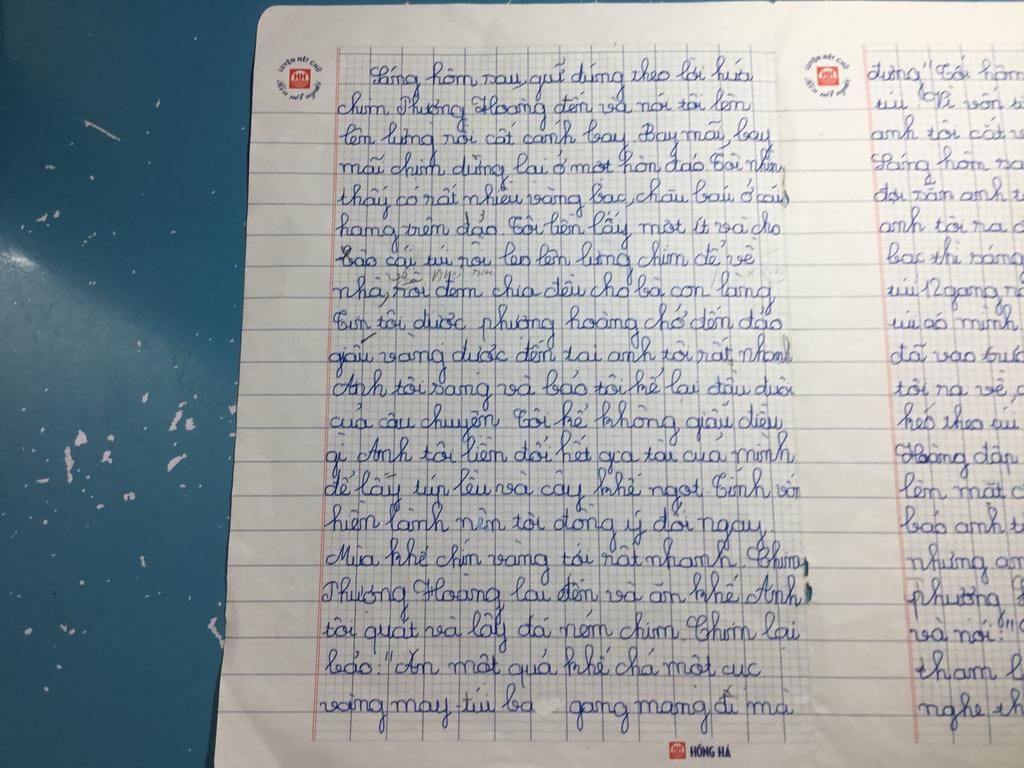 Sáng hôm sau, quả đúng theo lời hứa
chim Phượng Hoàng đến và nói tôi lên
lên lưng rồi cất cánh bay. Bay mãi, bay
mãi chim dừng lại ở một hòn đảo. Tôi nhìn
thấy có rất nhiều vàng bạc, châu báu ở cái
hang trên đảo. Tôi liền lấy một ít và cho
vào cái túi rồi leo lên lưng chim để về
nhà, rồi đem chia đều cho bà con làng
Tin tôi được phượng hoàng chở đến đảo
giấu vàng được đến tai anh tôi rất nhanh
Anh tôi sang và bảo tôi kể lại đầu đuôi
của câu chuyện. Tôi kể không giấu diều
gì Anh tôi liền đổi hết gia tài của mình
để lấy túp lều và cây khế ngọt. Tính vốn
hiền lành nên tôi đồng ý đổi ngay.
Mùa khế chín vàng tới rất nhanh. Chim
Phượng Hoàng lại đến và ăn khế Anh
tôi quát và lấy đá ném chim. Chim lại
bảo: "Ăn một quả khế chả một cục
vàng may túi ba gang mang đi mà
đựng" Tối hôm
túi. Vì vốn
anh tôi cắt
Sáng hôm
đợi sẵn anh
anh tôi ra
bạc thì sáng
túi 12 gang,
túi có mình
đã vào
tôi ra về,
kéo theo túi
Hoàng đập
lên mặt
bảo anh
nhưng
phượng
và nói: "
tham
nghe
LUYỆN NÉT CHỮ
RÈN NẾT NGƯỜI
HH
LUYỆN NÉT CHỮ
RÈN NẾT NGƯỜI
HH
HH HỒNG HÀ